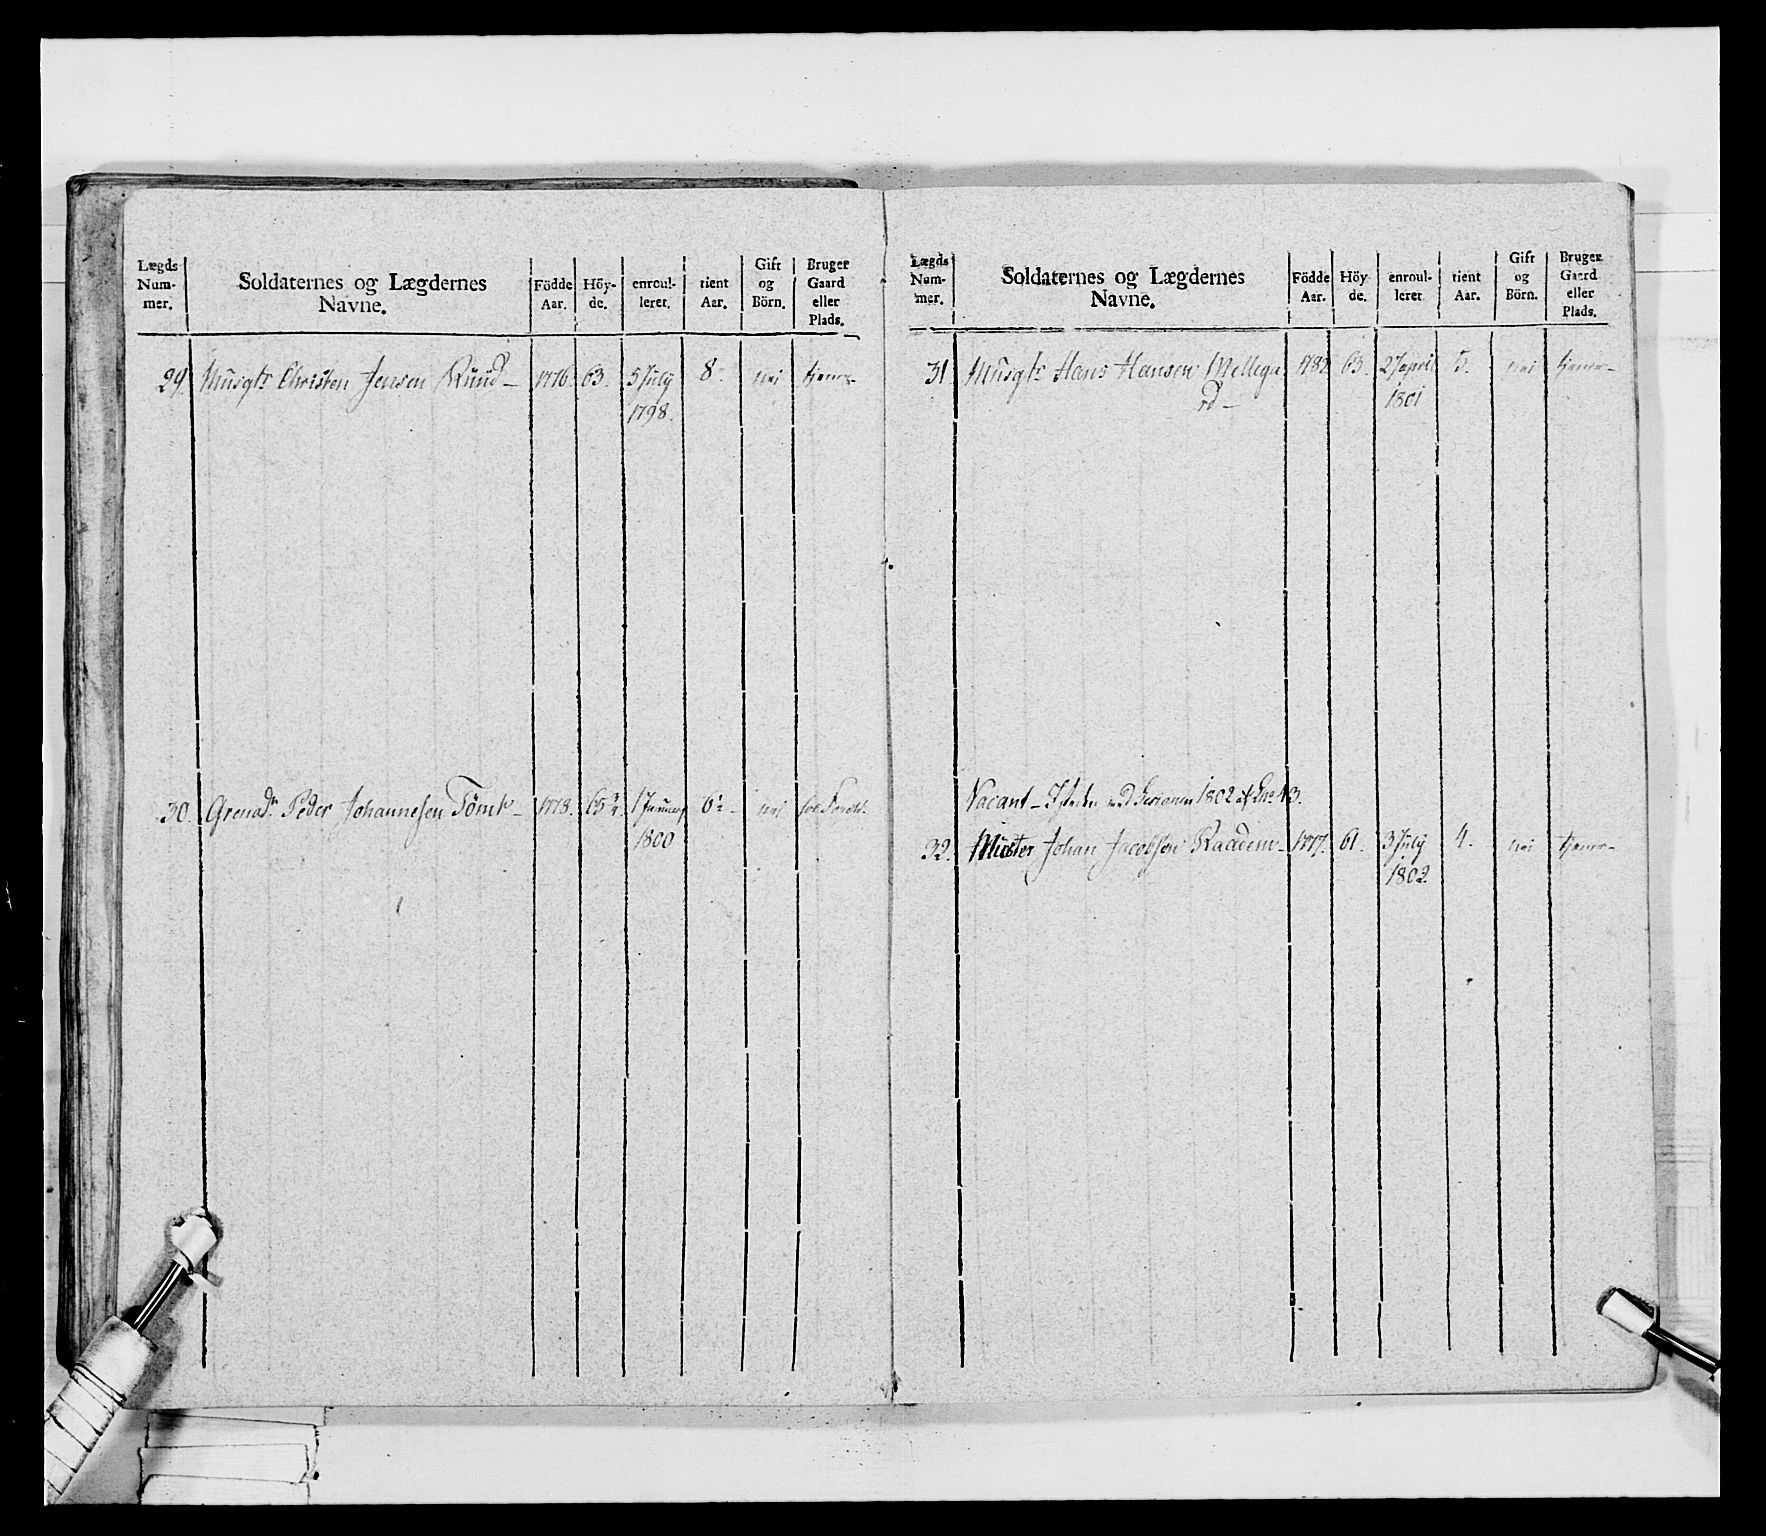 Lægds Num- mer. Soldaternes og Lægdernes Navne. Födde Aar. Höy- de. enroul- leret. tient Aar. Gift og Börn. Bruger Gaard eller Plads.
29. Musqtr Christen Jensen Rüüd – 1776. 63. 5 July 8. nei tjener –
1798.
30. Grenadr Peder Johannesen Tömt – 1778. 65 1 Januarj 6 nei
1800
Lægds Num- mer. Soldaternes og Lægdernes Navne. Födde Aar. Höy- de. enroul- leret. tient Aar. Gift og Börn. Bruger Gaard eller Plads.
31. Musqtr Hans Hansen Mellega 1782 63. 27 april 5. nei tjener –
rd – 1801
Vacant – ved Sessionen 1802 af No 43.
32. Johan Jacobsen Raadem – 1777. 61. 3 July 4. nei tjener –
1802